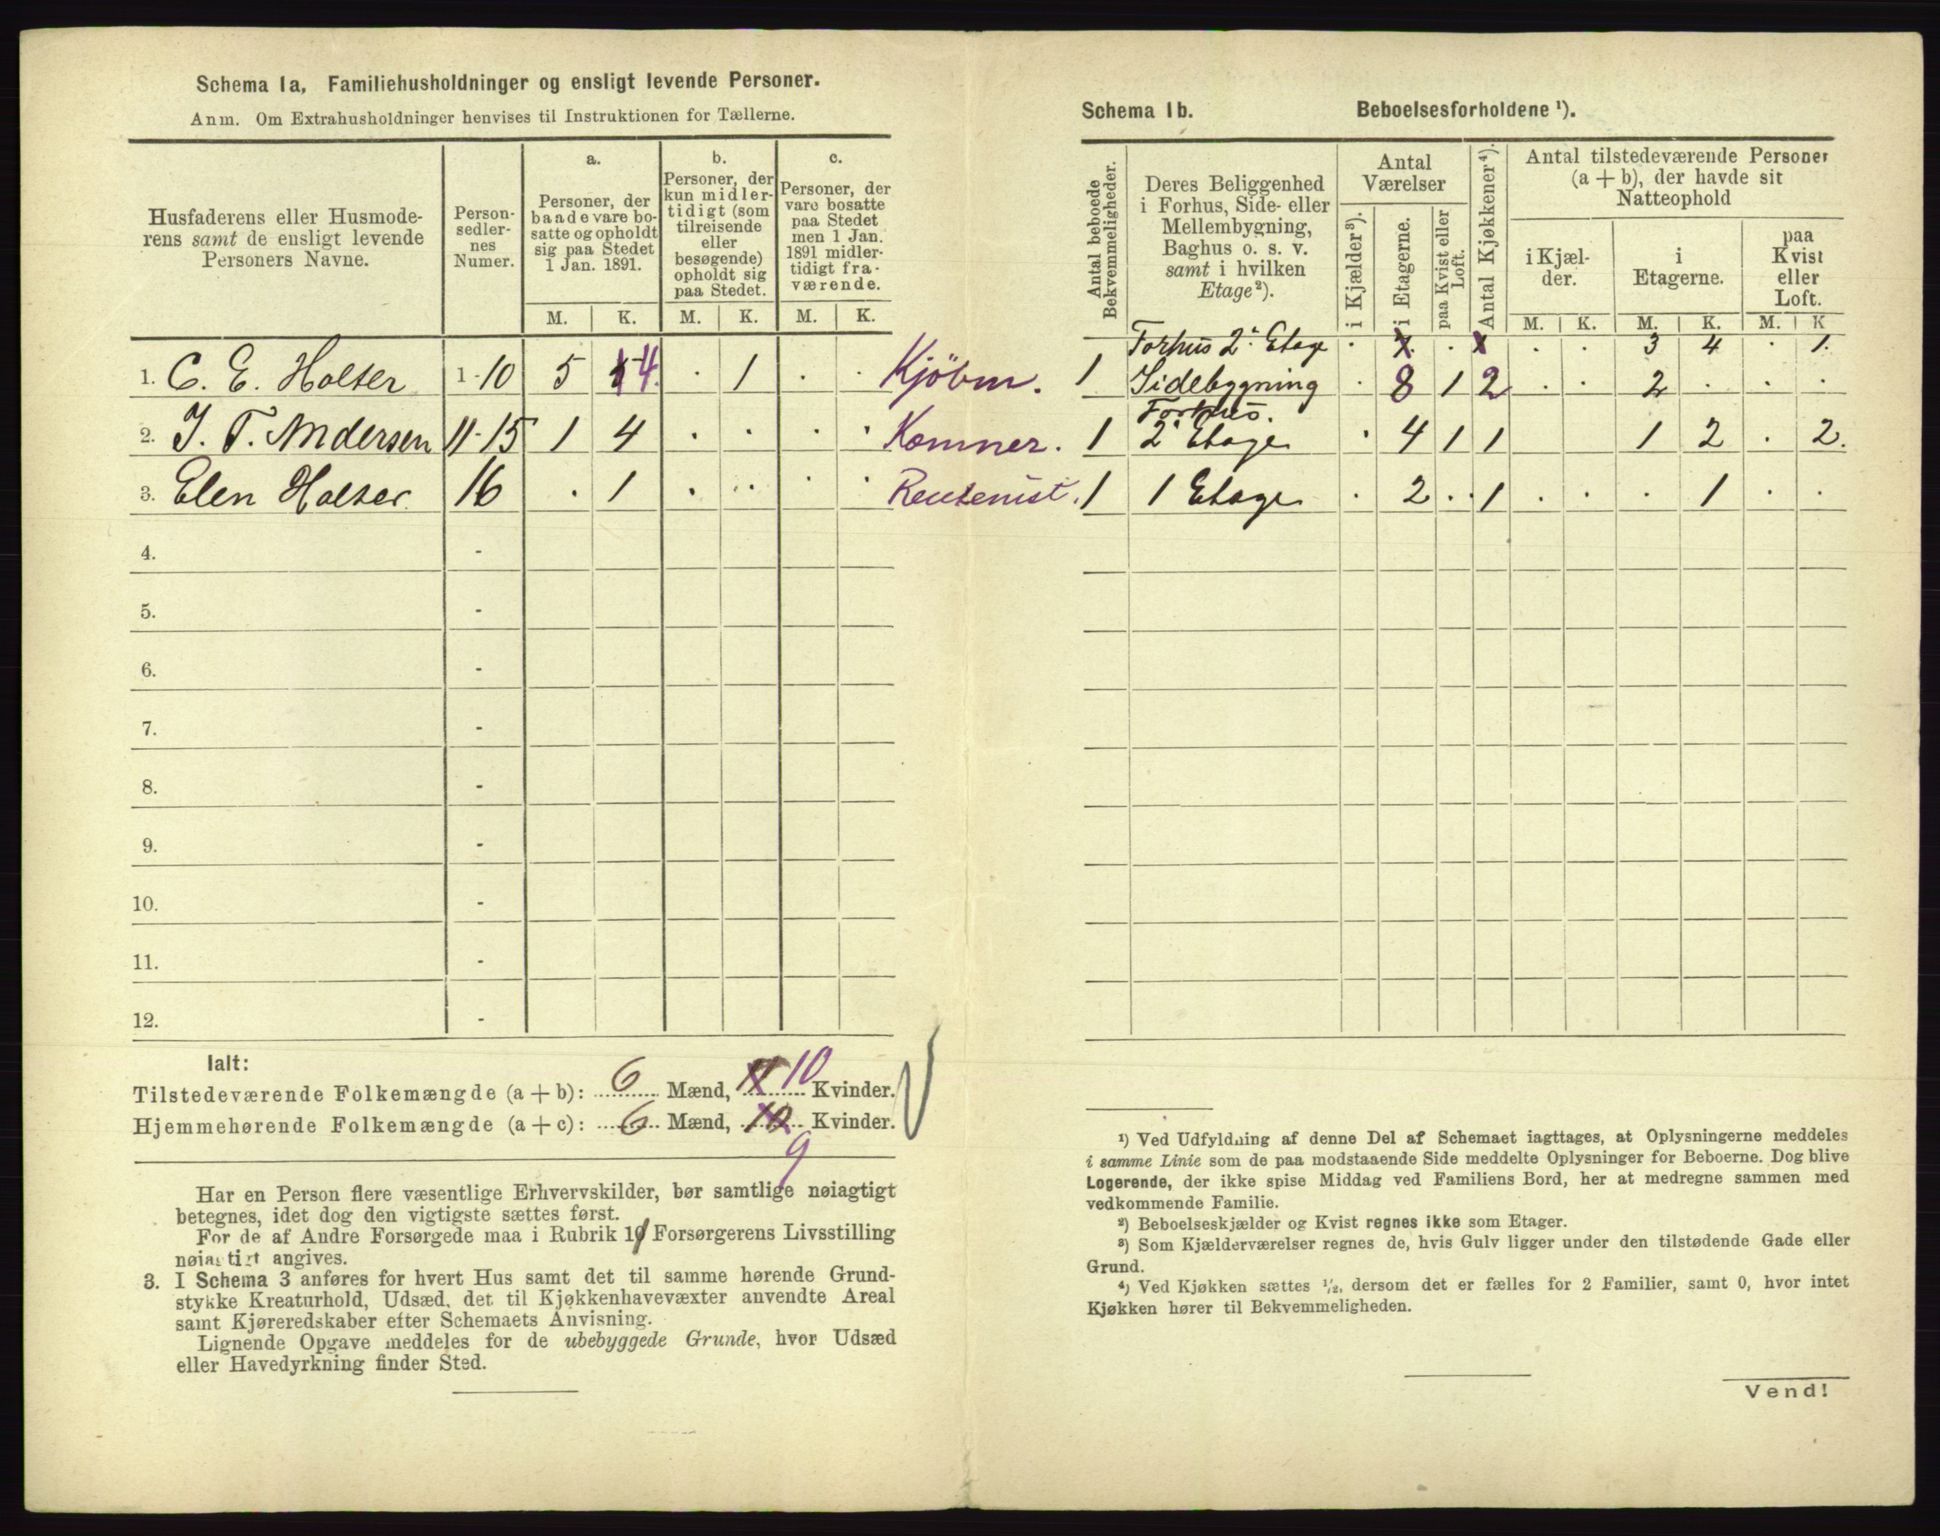 Schema 1a, Familiehusholdninger og ensligt levende Personer.
Anm. Om Extrahusholdninger henvises til Instruktionen for Tællerne.
Husfaderens eller Husmode-
rens samt de ensligt levende
Personers Navne.
Person-
sedler-
nes
Numer.
a.
Personer, der
baade vare bo-
satte og opholdt
sig paa Stedet
1 Jan. 1891.
b.
Personer, der
kun midler-
tidigt (som
tilreisende
eller
besøgende)
opholdt sig
paa Stedet.
c.
Personer, der
vare bosatte
paa Stedet
men 1 Jan.
1891 midler-
tidigt fra-
værende.
M. K. M. K. M. K.
1. C. E. Holter 1-10 5 4. . 1 . . Kjöbm.
2. J. T. Andersen 11-15 1 4 . . . . Kæmner.
3. Elen Holter. 16 . 1 . . . . Rentenist.
4. -
5. -
6. -
7. -
8. -
9. -
10. -
11. -
12. -
Ialt:
Tilstedeværende Folkemængde (a + b): 6 Mænd, 11 10 Kvinder.
Hjemmehørende Folkemængde (a + c): 6 Mænd, 10 Kvinder.
9
Har en Person flere væsentlige Erhvervskilder, bør samtlige nøiagtigt
betegnes, idet dog den vigtigste sættes først.
For de af Andre Forsørgede maa i Rubrik 10 Forsørgerens Livsstilling
nøiagtigt angives.
3. I Schema 3 anføres for hvert Hus samt det til samme hørende Grund-
stykke Kreaturhold, Udsæd, det til Kjøkkenhavevæxter anvendte Areal
samt Kjøreredskaber efter Schemaets Anvisning.
Lignende Opgave meddeles for de ubebyggede Grunde, hvor Udsæd
eller Havedyrkning finder Sted.
Schema 1b. Beboelsesforholdene ¹).
Antal beboede
Bekvemmeligheder.
Deres Beliggenhed
i Forhus, Side- eller
Mellembygning,
Baghus o. s. v.
samt i hvilken
Etage²).
Antal
Værelser
i Kjælder³).
i Etagerne.
paa Kvist eller
Loft.
Antal Kjøkkener⁴).
Antal tilstedeværende Personer
(a + b), der havde sit
Natteophold
i Kjæl-
der.
i
Etagerne.
paa
Kvist
eller
Loft.
M. K. M. K. M. K
Forhus 2. Etage . x . x . . 3 4 . 1.
1 Sidebygning . 8 1 2 . . 2 . . .
Forhus.
1 2. Etage . 4 1 1 1 2 . 2.
1 1 Etage . 2 . 1 . . . 1 . .
¹) Ved Udfyldning af denne Del af Schemaet iagttages, at Oplysningerne meddeles
i samme Linie som de paa modstaaende Side meddelte Oplysninger for Beboerne. Dog blive
Logerende, der ikke spise Middag ved Familiens Bord, her at medregne sammen med
vedkommende Familie.
²) Beboelseskjælder og Kvist regnes ikke som Etager.
³) Som Kjælderværelser regnes de, hvis Gulv ligger under den tilstødende Gade eller
Grund.
⁴) Ved Kjøkken sættes ½, dersom det er fælles for 2 Familier, samt 0, hvor intet
Kjøkken hører til Bekvemmeligheden.
Vend!